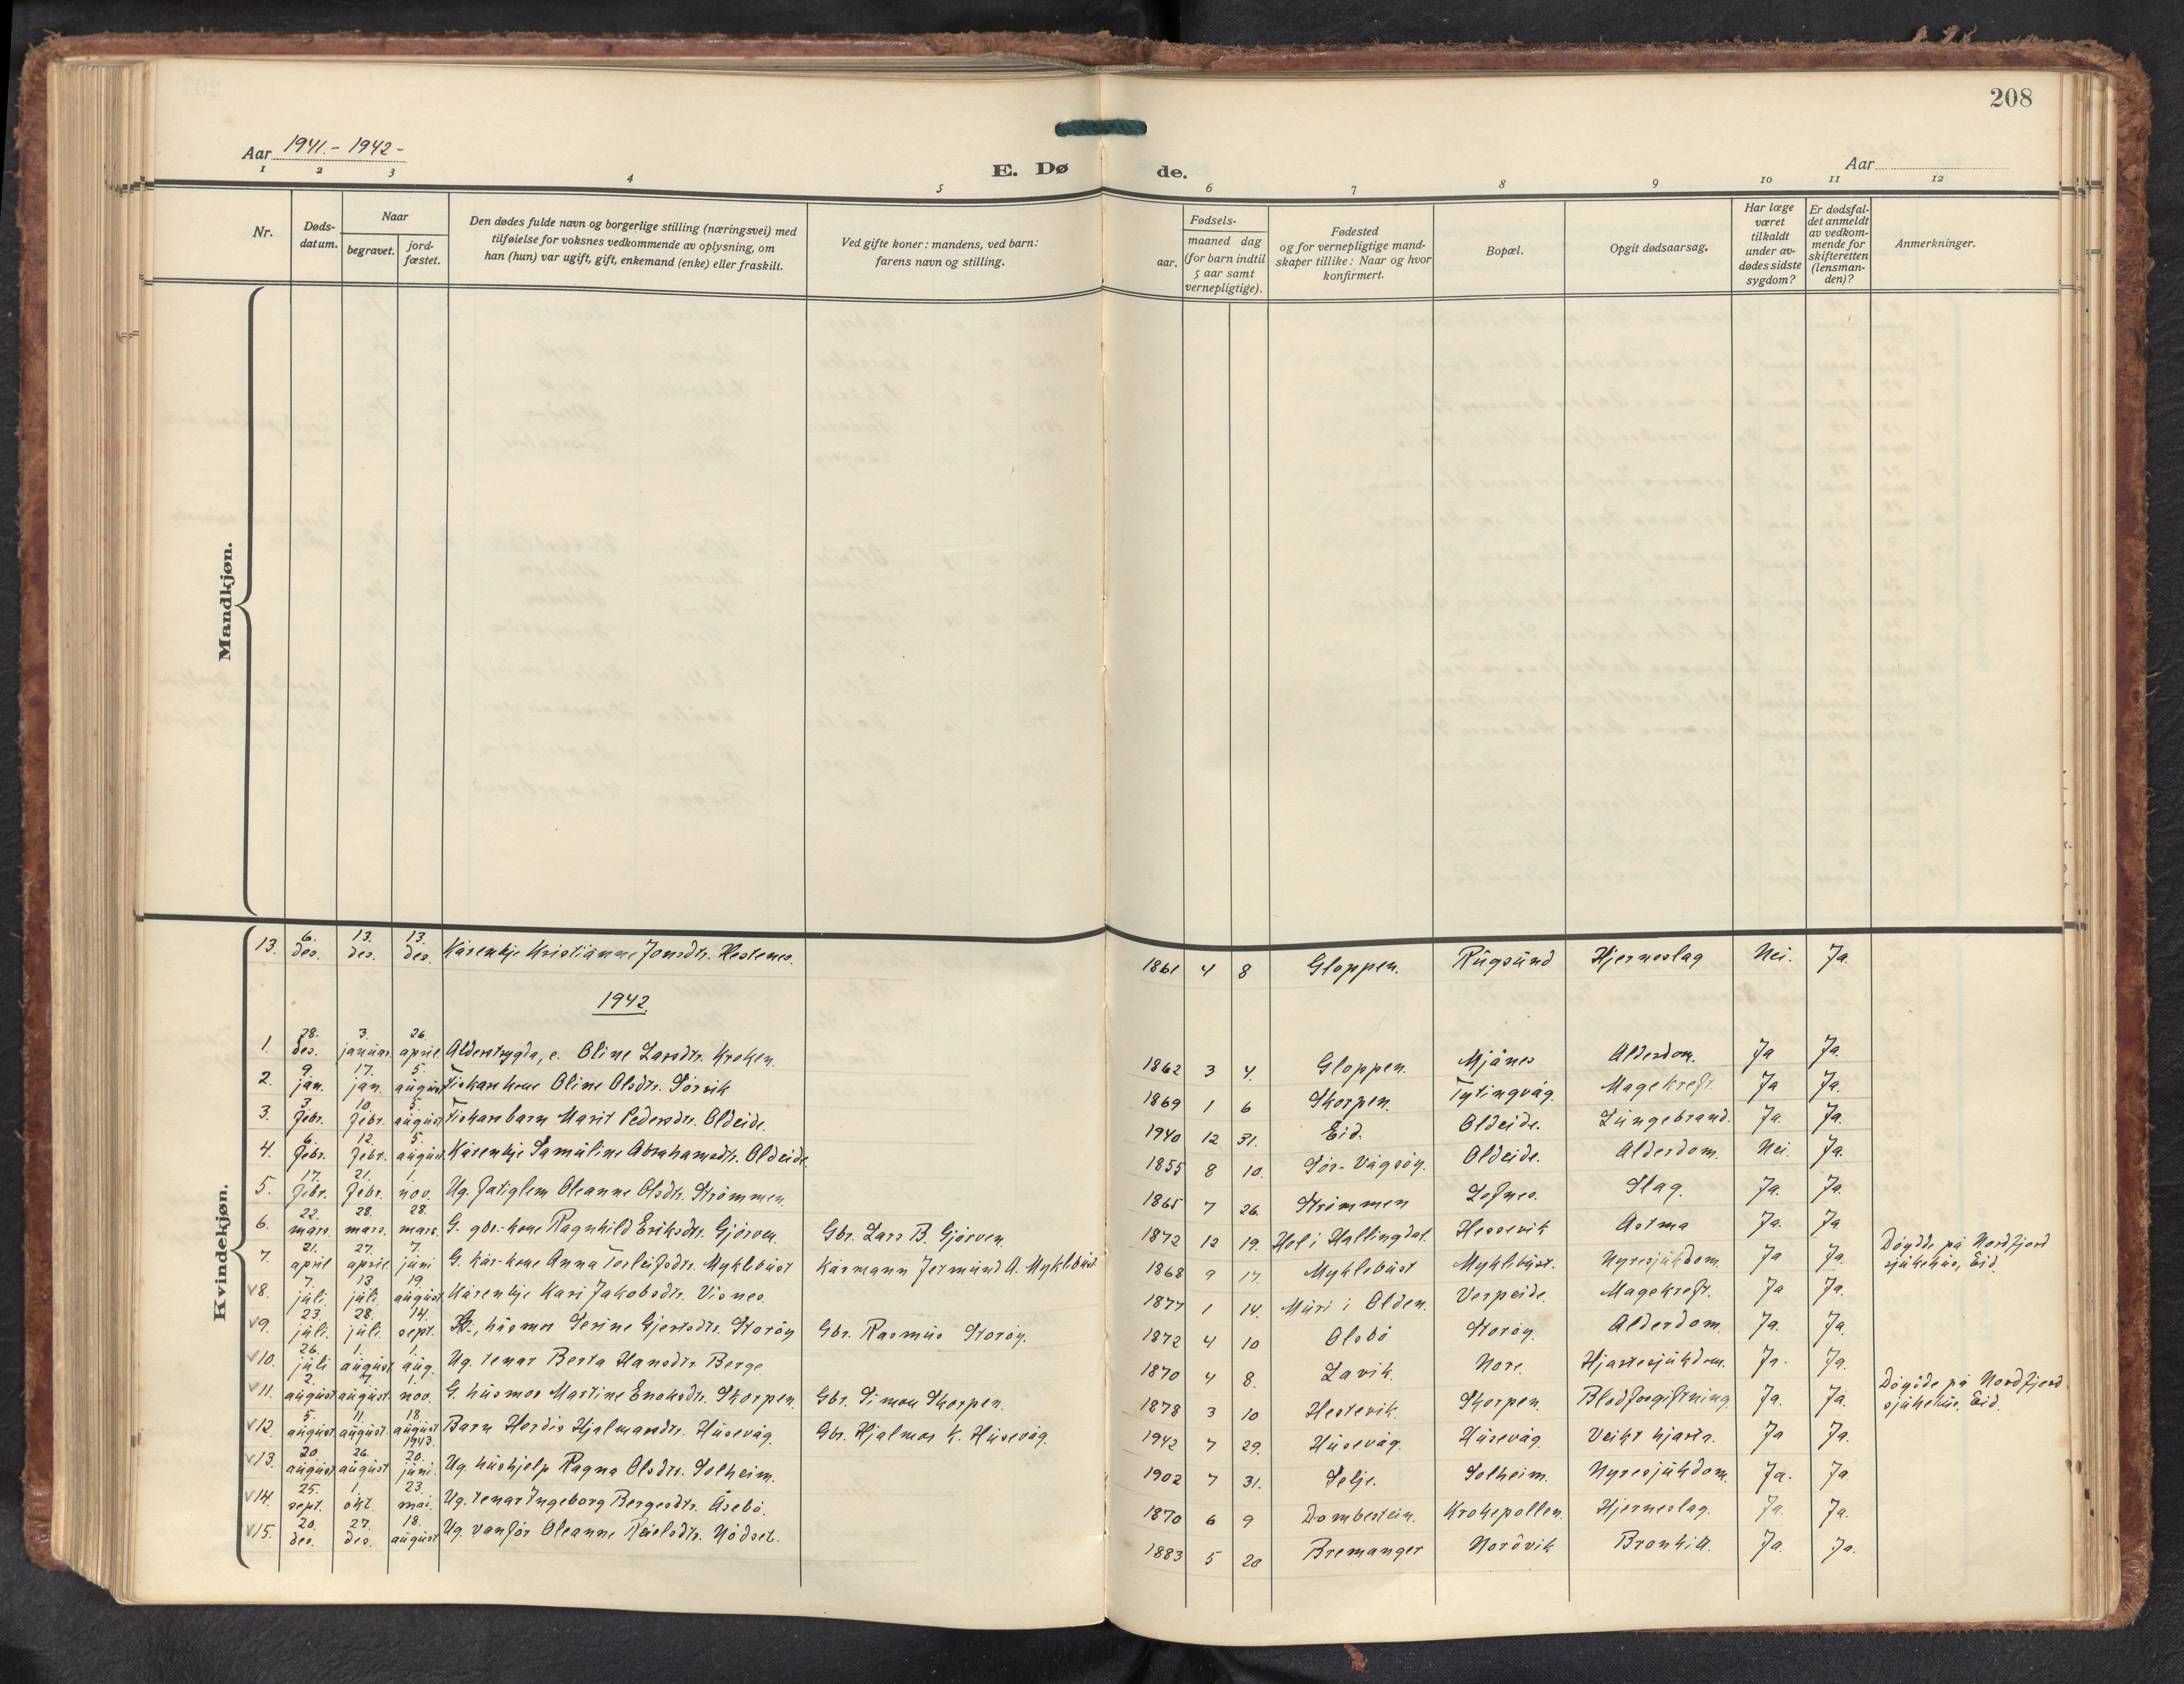 208
Aar 1941.- 1942-
E. Dø de.
Aar
1 2 3 4 5 6 7 8 9 10 11 12
Nr.
Døds-
datum.
Naar
begravet.
jord-
fæstet.
Den dødes fulde navn og borgerlige stilling (næringsvei) med
tilføielse for voksnes vedkommende av oplysning, om
han (hun) var ugift, gift, enkemand (enke) eller fraskilt.
Ved gifte koner: mandens, ved barn:
farens navn og stilling.
Fødsels-
aar.
maaned dag
(for barn indtil
5 aar samt
vernepligtige).
Fødested
og for vernepligtige mand-
skaper tillike: Naar og hvor
konfirmert.
Bopæl.
Opgit dødsaarsag.
Har læge
været
tilkaldt
under av-
dødes sidste
sygdom?
Er dødsfal-
det anmeldt
av vedkom-
mende for
skifteretten
(lensman-
den)?
Anmerkninger.
Mandkjøn.
Kvindekjøn.
13. 6. des. 13. des. 13. des. Kårenkje Kristianne Jonsdtr. Hestenes. 1861 4 8 Gloppen. Rugsund Hjerneslag Nei. Ja.
1942.
1. 28. des. 3. januar. 26. april Alderstrygda, e. Oline Larsdtr. Kroken. 1862 3 4. Gloppen. Mjånes Alderdom. Ja Ja.
2. 9. jan. 17. jan. 5. august Fiskarkone Oline Olsdtr. Sørvik 1869 1 6 Skorpen. Tytingvåg. Magekreft. Ja Ja.
3. 3. febr. 10. febr. 5. august Fiskarbarn Marit Pedersdtr. Oldeide. 1940 12 31. Eid. Oldeide. Lungebrand. Ja. Ja.
4. 6. febr. 12. febr. 5. august Kårenkje Samuline Abrahamsdtr. Oldeide 1855 8 10. Sør-Vågsøy. Oldeide. Alderdom. Nei. Ja.
5. 17. febr. 21. febr. 1. nov. Ug. fatiglem Oleanne Olsdtr. Strømmen. 1865 7 26. Strømmen Lefnes. Slag. Ja. Ja.
6. 22. mars. 28. mars. 28. mars. G. gbr.-kone Ragnhild Eriksdtr. Gjørven. Gbr. Lars B. Gjørven. 1872 12 19. Hol i Hallingdal. Hessevik Astma Ja. Ja
7. 21. april 27. april 7. juni G. kår-kone Anna Torleifsdtr. Myklebust Kårmann Jermund A. Myklebust 1868 9 17. Myklebust Myklebust. Nyresjukdom. Ja Ja. Døydde på Nordfjord sjukehus, Eid.
v8. 7. juli. 13. juli. 19. august. Kårenkje Kari Jakobsdtr. Visnes. 1877 1 14. Muri i Olden. Verpeide. Magekreft. Ja Ja.
v9. 23. juli. 28. juli. 14. sept. husmor Serine Gjertsdtr. Storøy Gbr. Rasmus Storøy. 1872 4 10 Olsbø Storøy. Alderdom. Ja. Ja.
v10. 26. juli 1. august 1. aug. Ug. tenar Berta Hansdtr. Berge. 1870 4 8. Lavik. Nore. Hjartesjukdom. Ja. Ja.
v11. 2. august 7. august. 1. nov. G. husmor Martine Enoksdtr. Skorpen. Gbr. Simon Skorpen. 1878 3 10 Hestevik. Skorpen. Blodforgiftning. Ja. Ja. Døydde på Nordfjord sjukehus, Eid.
v12. 5. august 11. august. 18. august 1943. Barn Herdis Hjalmarsdtr. Husevåg. Gbr. Hjalmar K. Husevåg. 1942 7 29. Husevåg. Husevåg. Veikt hjarta. Ja Ja.
v13. 20. august 26. august 20. juni. Ug. hushjelp Ragna Olsdtr. Solheim. 1902 7 31. Selje. Solheim. Nyresjukdom. Ja. Ja
v14. 25. sept. 1. okt. 23. mai. Ug. tenar Ingeborg Bergesdtr. Åsebø. 1870 6 9 Dombestein. Krokepollen. Hjerneslag. Ja. Ja.
v15. 20. des. 27. des. 18. august Ug. vanfør Oleanne Nødset. 1883 5 20 Bremanger Nordvik Bronkitt. Ja. Ja.